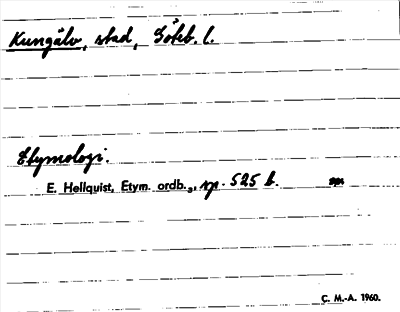 Kungälv, stad, Göteb. l.
Etymologi.
E. Hellquist, Etym. ordb.3, sp. 525 b.
C. M.-A. 1960.